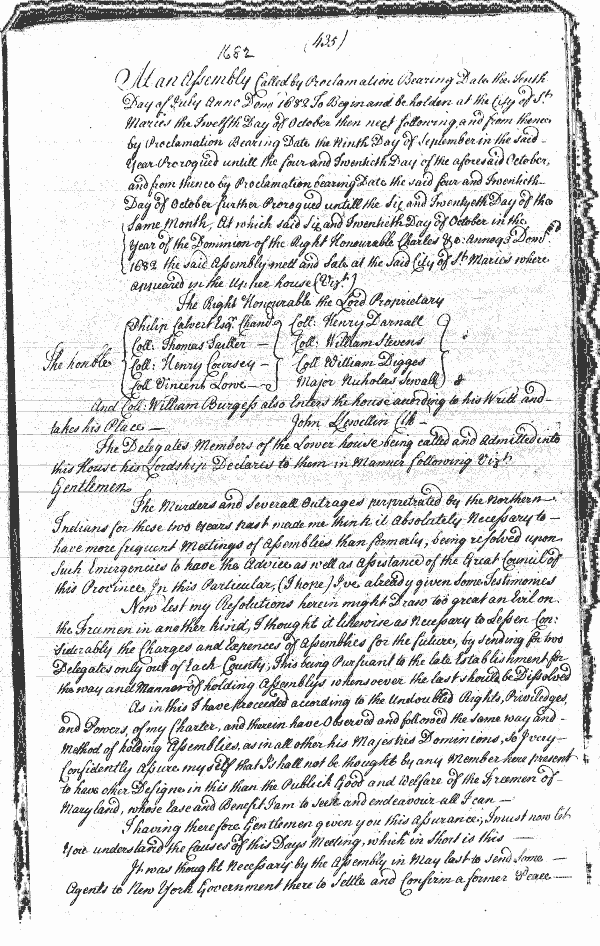 1682 (435)
At an Assembly Called by Proclamation Bearing Date the Tenth
Day of July Anno Dom̃ 1682 To Begin and be holden at the City of St.
Maries the Twelfth Day of October then next following, and from thence
by Proclamation Bearing Date the Ninth Day of September in the said
Year Prorogued untill the four and Twentieth Day of the aforesaid October,
and from thence by Proclamation bearing Date the said four and Twentieth
Day of October further Prorogued untill the Six and Twentyeth Day of the
Same Month, At which said Six and Twentieth Day of October in the
Year of the Dominion of the Right Honourable Charles &c: Annoq Dom
1682 the said Assembly mett and Sate at the Said City of St. Maries where
appeared in the Upper house (Vizt)
The Right Honourable the Lord Proprietary
The honble
Philip Calvert Esqr. Chanr Coll: Henry Darnall
Coll: Thomas Tailler — Coll: William Stevens
Coll: Henry Coursey — Coll William Digges
Coll Vincent Lowe — Major Nicholas Sewall &
And Coll: William Burgess also Enters the house according to his Writt and
takes his Place — John Llewellin Clk —
The Delegates Members of the Lower house being called and Admitted into
this House his Lordship Declares to them in Manner following Vizt.
Gentlemen
The Murders and Severall Outrages perpetrated by the Northern
Indians for these two Years past made me think it Absolutely Necessary to —
have more frequent Meetings of Assemblies than formerly, being resolved upon
Such Emergencies to have the Advice as well as Assistance of the Great Council of
this Province In this Particular, (I hope) I've already given Some Testimonies
Now lest my Resolutions herein might Draw too great an Evil on
the Freemen in another kind, I thought it likewise as Necessary to Lessen Con:
siderably the Charges and Expences of Assemblies for the future, by sending for two
Delegates only out of Each County, This being Pursuant to the late Establishment for
the way and Manner of holding Assemblys whensoever the last should be Dissolved
As in this I have preceeded according to the Undoubted Rights, Priviledges,
and Powers, of my Charter, and therein have Observed and followed the same way and
Method of holding Assemblies, as in all other his Majesties Dominions, so I very
Confidently Assure my self that I shall not be thought by any Member here present
to have other Designs in this than the Publick Good and Welfare of the Freemen of
Maryland, whose Ease and Benefit I am to Seek and endeavour all I can —
I having therefore Gentlemen given you this Assurance, I must now let
You understand the Causes of this Days Meeting, which in Short is this —
It was thought Necessary by the Assembly in May last to send some —
Agents to New York Government there to Settle and Confirm a former Peace —